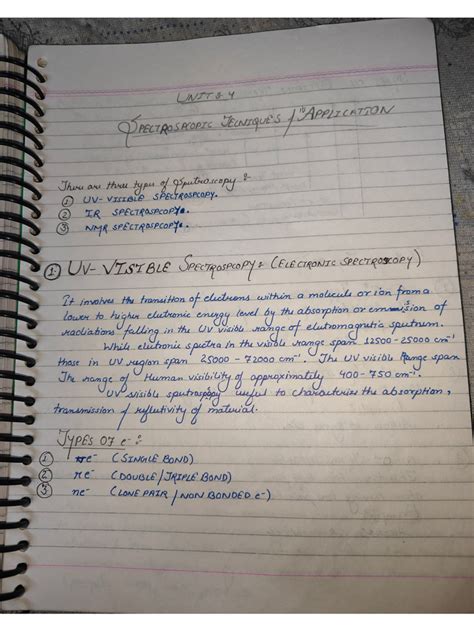 UNIT: 4
SPECTROSPCOPIC TECNIQUE'S / APPLICATION
There are three types of Spectroscopy :
① UV-VISIBLE SPECTROSPCOPY.
② IR SPECTROSPCOPY.
③ NMR SPECTROSPCOPY.
① UV-VISIBLE SPECTROSPCOPY : (ELECTRONIC SPECTROSCOPY)
It involves the transition of electrons within a molecule or ion from a
lower to higher electronic energy level by the absorption or emission of
radiations falling in the UV visible range of electromagnetic spectrum.
While electronic spectra in the visible range span 12500 - 25000 cm⁻¹
those in UV region span 25000 - 72000 cm⁻¹. The UV visible Range span
The range of Human visibility of approximately 400-750 cm⁻¹.
UV visible spectroscopy useful to characterize the absorption,
transmission & reflectivity of material.
TYPES OF e⁻ :
① e⁻ (SINGLE BOND)
② πe⁻ (DOUBLE / TRIPLE BOND)
③ ne⁻ (LONE PAIR / NON BONDED e⁻)